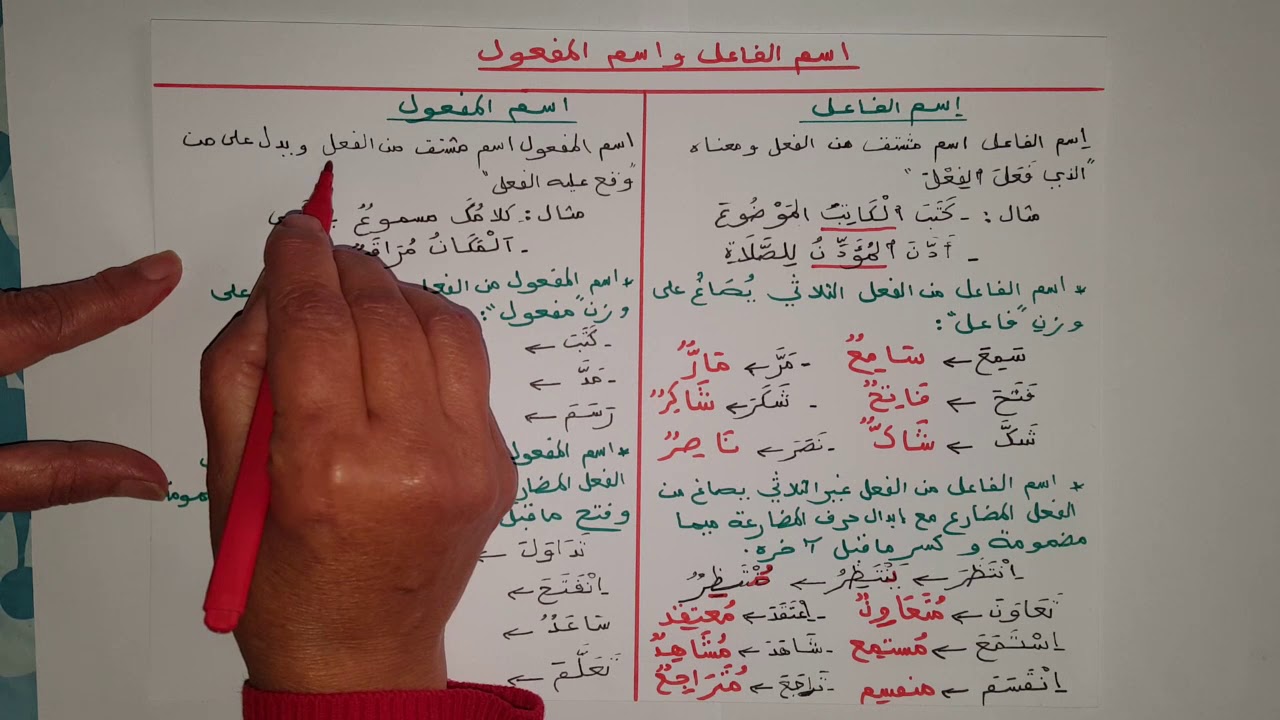 اسم الفاعل واسم المفعول
إسم الفاعل
إسم الفاعل اسم مشتق من الفعل ومعناه
"الذي فَعَلَ الفِعْلَ"
مثال: - كَتَبَ الْكَاتِبُ المَوْضُوعَ
- أَذَّنَ المُؤَذِّنُ لِلصَّلَاةِ
* اسم الفاعل من الفعل الثلاثي يُصَاغُ على
وزنِ "فاعل":
سَمِعَ ← سَامِعٌ - مَرَّ ← مَارٌّ
فَتَحَ ← فَاتِحٌ - شَكَرَ ← شَاكِرٌ
شَكَّ ← شَاكٌّ - نَصَرَ ← نَاصِرٌ
* اسم الفاعل من الفعل غير الثلاثي يصاغ من
الفعل المضارع مع إبدال حرف المضارعة ميما
مضمومة و كسر ما قبل آخره.
انْتَظَرَ ← يَنْتَظِرُ ← مُنْتَظِرٌ
تَعَاوَنَ ← مُتَعَاوِنٌ - اعْتَقَدَ ← مُعتقِد
اِسْتَمَعَ ← مُستمِع - شَاهَدَ ← مُشَاهِدٌ
اِنْقَسَمَ ← منقسِم - تَرَاجَعَ ← مُتَرَاجِعٌ
اسم المفعول
اسم المفعول اسم مشتق من الفعل ويدل على من
"وقع عليه الفعل"
مثال: - كلامُكَ مسموعٌ
- اَلْمَكَانُ مُرَاقَبٌ
* اسم المفعول من الفعل على
وزن "مفعول":
- كَتَبَ ←
- مَدَّ ←
رَسَمَ ←
* اسم المفعول
الفعل المضارع
وفتح ما قبل
تَدَاوَلَ ←
اِنْفَتَحَ ←
سَاعَدَ ←
تَعَلَّمَ ←